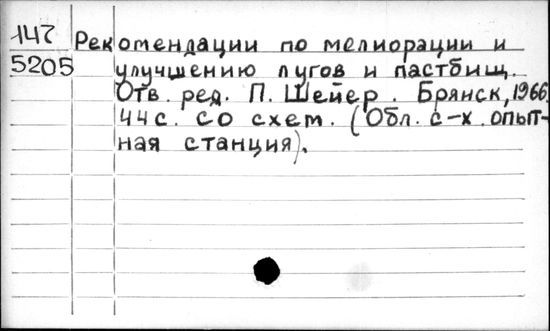 147 Рекомендации по мелиорации и
5205 улучшению лугов и пастбищ.
Отв. ред. П. Шейер. Брянск, 1966.
44с. со схем. (Обл. с-х. опыт-
ная станция).